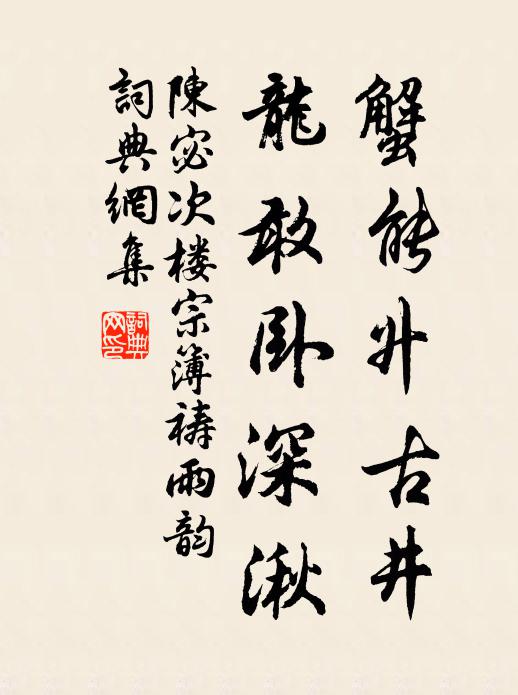 蟹能升古井
龍敢卧深湫
陳宓次楼宗簿禱雨韵
詞典網集
詞典网印